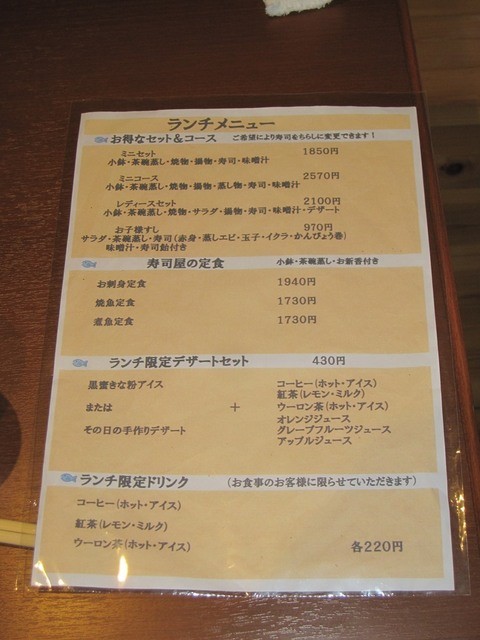 ランチメニュー
お得なセット＆コース ご希望により寿司をちらしに変更できます！
ミニセット 1850円
小鉢・茶碗蒸し・焼物・揚物・寿司・味噌汁
ミニコース 2570円
小鉢・茶碗蒸し・焼物・揚物・蒸し物・寿司・味噌汁
レディースセット 2100円
小鉢・茶碗蒸し・焼物・サラダ・揚物・寿司・味噌汁・デザート
お子様すし 970円
サラダ・茶碗蒸し・寿司（赤身・蒸しエビ・玉子・イクラ・かんぴょう巻）
味噌汁・寿司飴付き
寿司屋の定食 小鉢・茶碗蒸し・お新香付き
お刺身定食 1940円
焼魚定食 1730円
煮魚定食 1730円
ランチ限定デザートセット 430円
黒蜜きな粉アイス
または
その日の手作りデザート
＋
コーヒー（ホット・アイス）
紅茶（レモン・ミルク）
ウーロン茶（ホット・アイス）
オレンジジュース
グレープフルーツジュース
アップルジュース
ランチ限定ドリンク （お食事のお客様に限らせていただきます）
コーヒー（ホット・アイス）
紅茶（レモン・ミルク）
ウーロン茶（ホット・アイス） 各220円